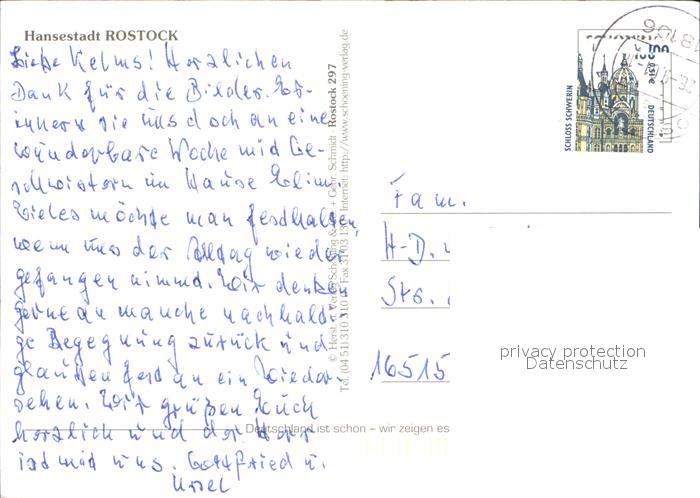 Hansestadt ROSTOCK
Liebe Kelms! Herzlichen
Dank für die Bilder. Er-
innern sie uns doch an eine
wunderbare Woche mid Ge-
schwistern im Hause Elim.
Vieles möchte man festhalten,
wenn uns der Alltag wieder
gefangen nimmd. Wir denken
gerne an manche nachhald-
ge Begegnung zurück und
glauben fest an ein Wieder-
sehen. Wir grüßen Euch
herzlich und der Herr
ist mid uns. Gottfried u.
Ursel
© Herst. u. Verlag Schöning & + Gebr. Schmidt Rostock 297
Tel. (04 51) 310 310 Fax 31 03 Internet: http://www.schoening-verlag.de
Deutschland ist schön – wir zeigen es
SCHLOSS SCHWERIN
DEUTSCHLAND
100
0,51 €
18106
Fam.
H-D.
Str.
16515
privacy protection
Datenschutz